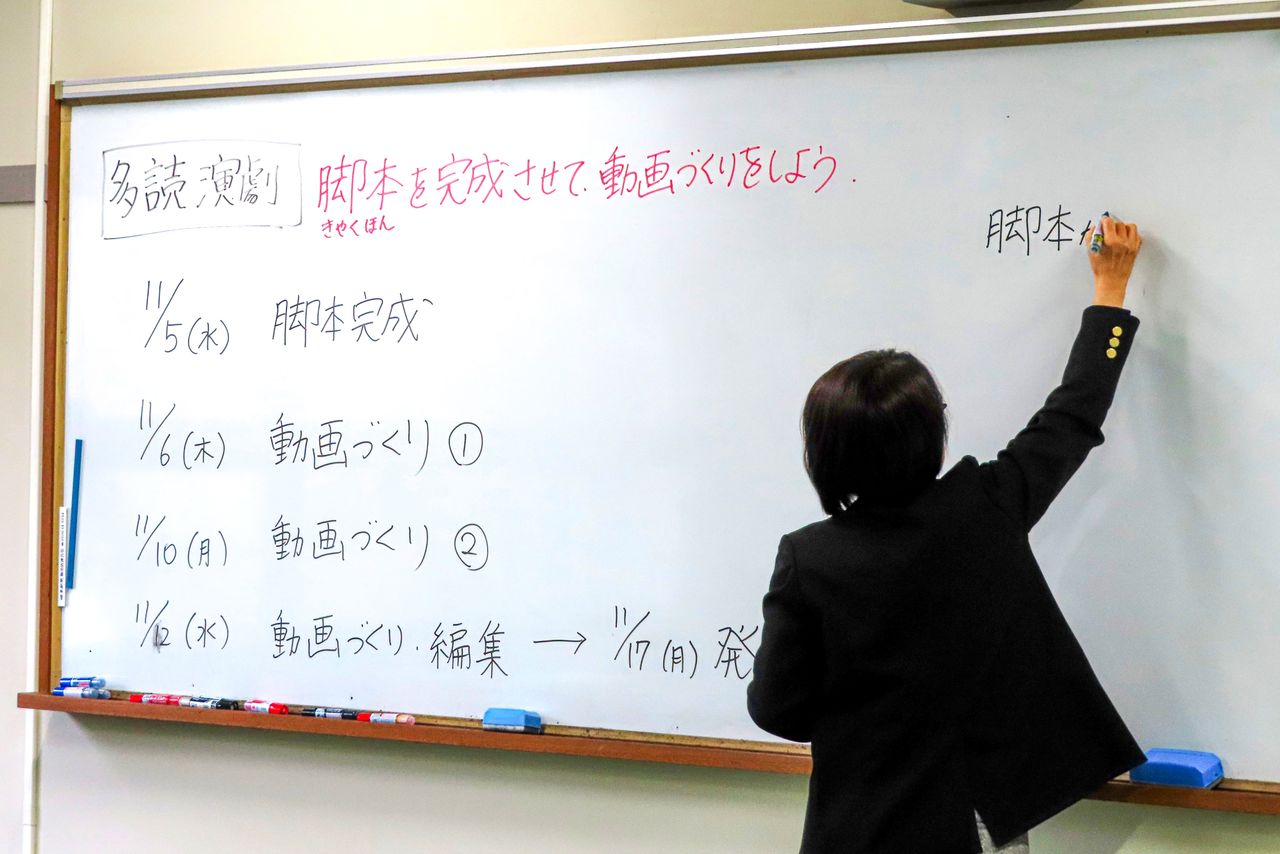 多読演劇 脚本を完成させて、動画づくりをしよう.
きゃくほん
脚本
11/5(水) 脚本完成
11/6(木) 動画づくり①
11/10(月) 動画づくり②
11/12(水) 動画づくり・編集 → 11/17(月) 発